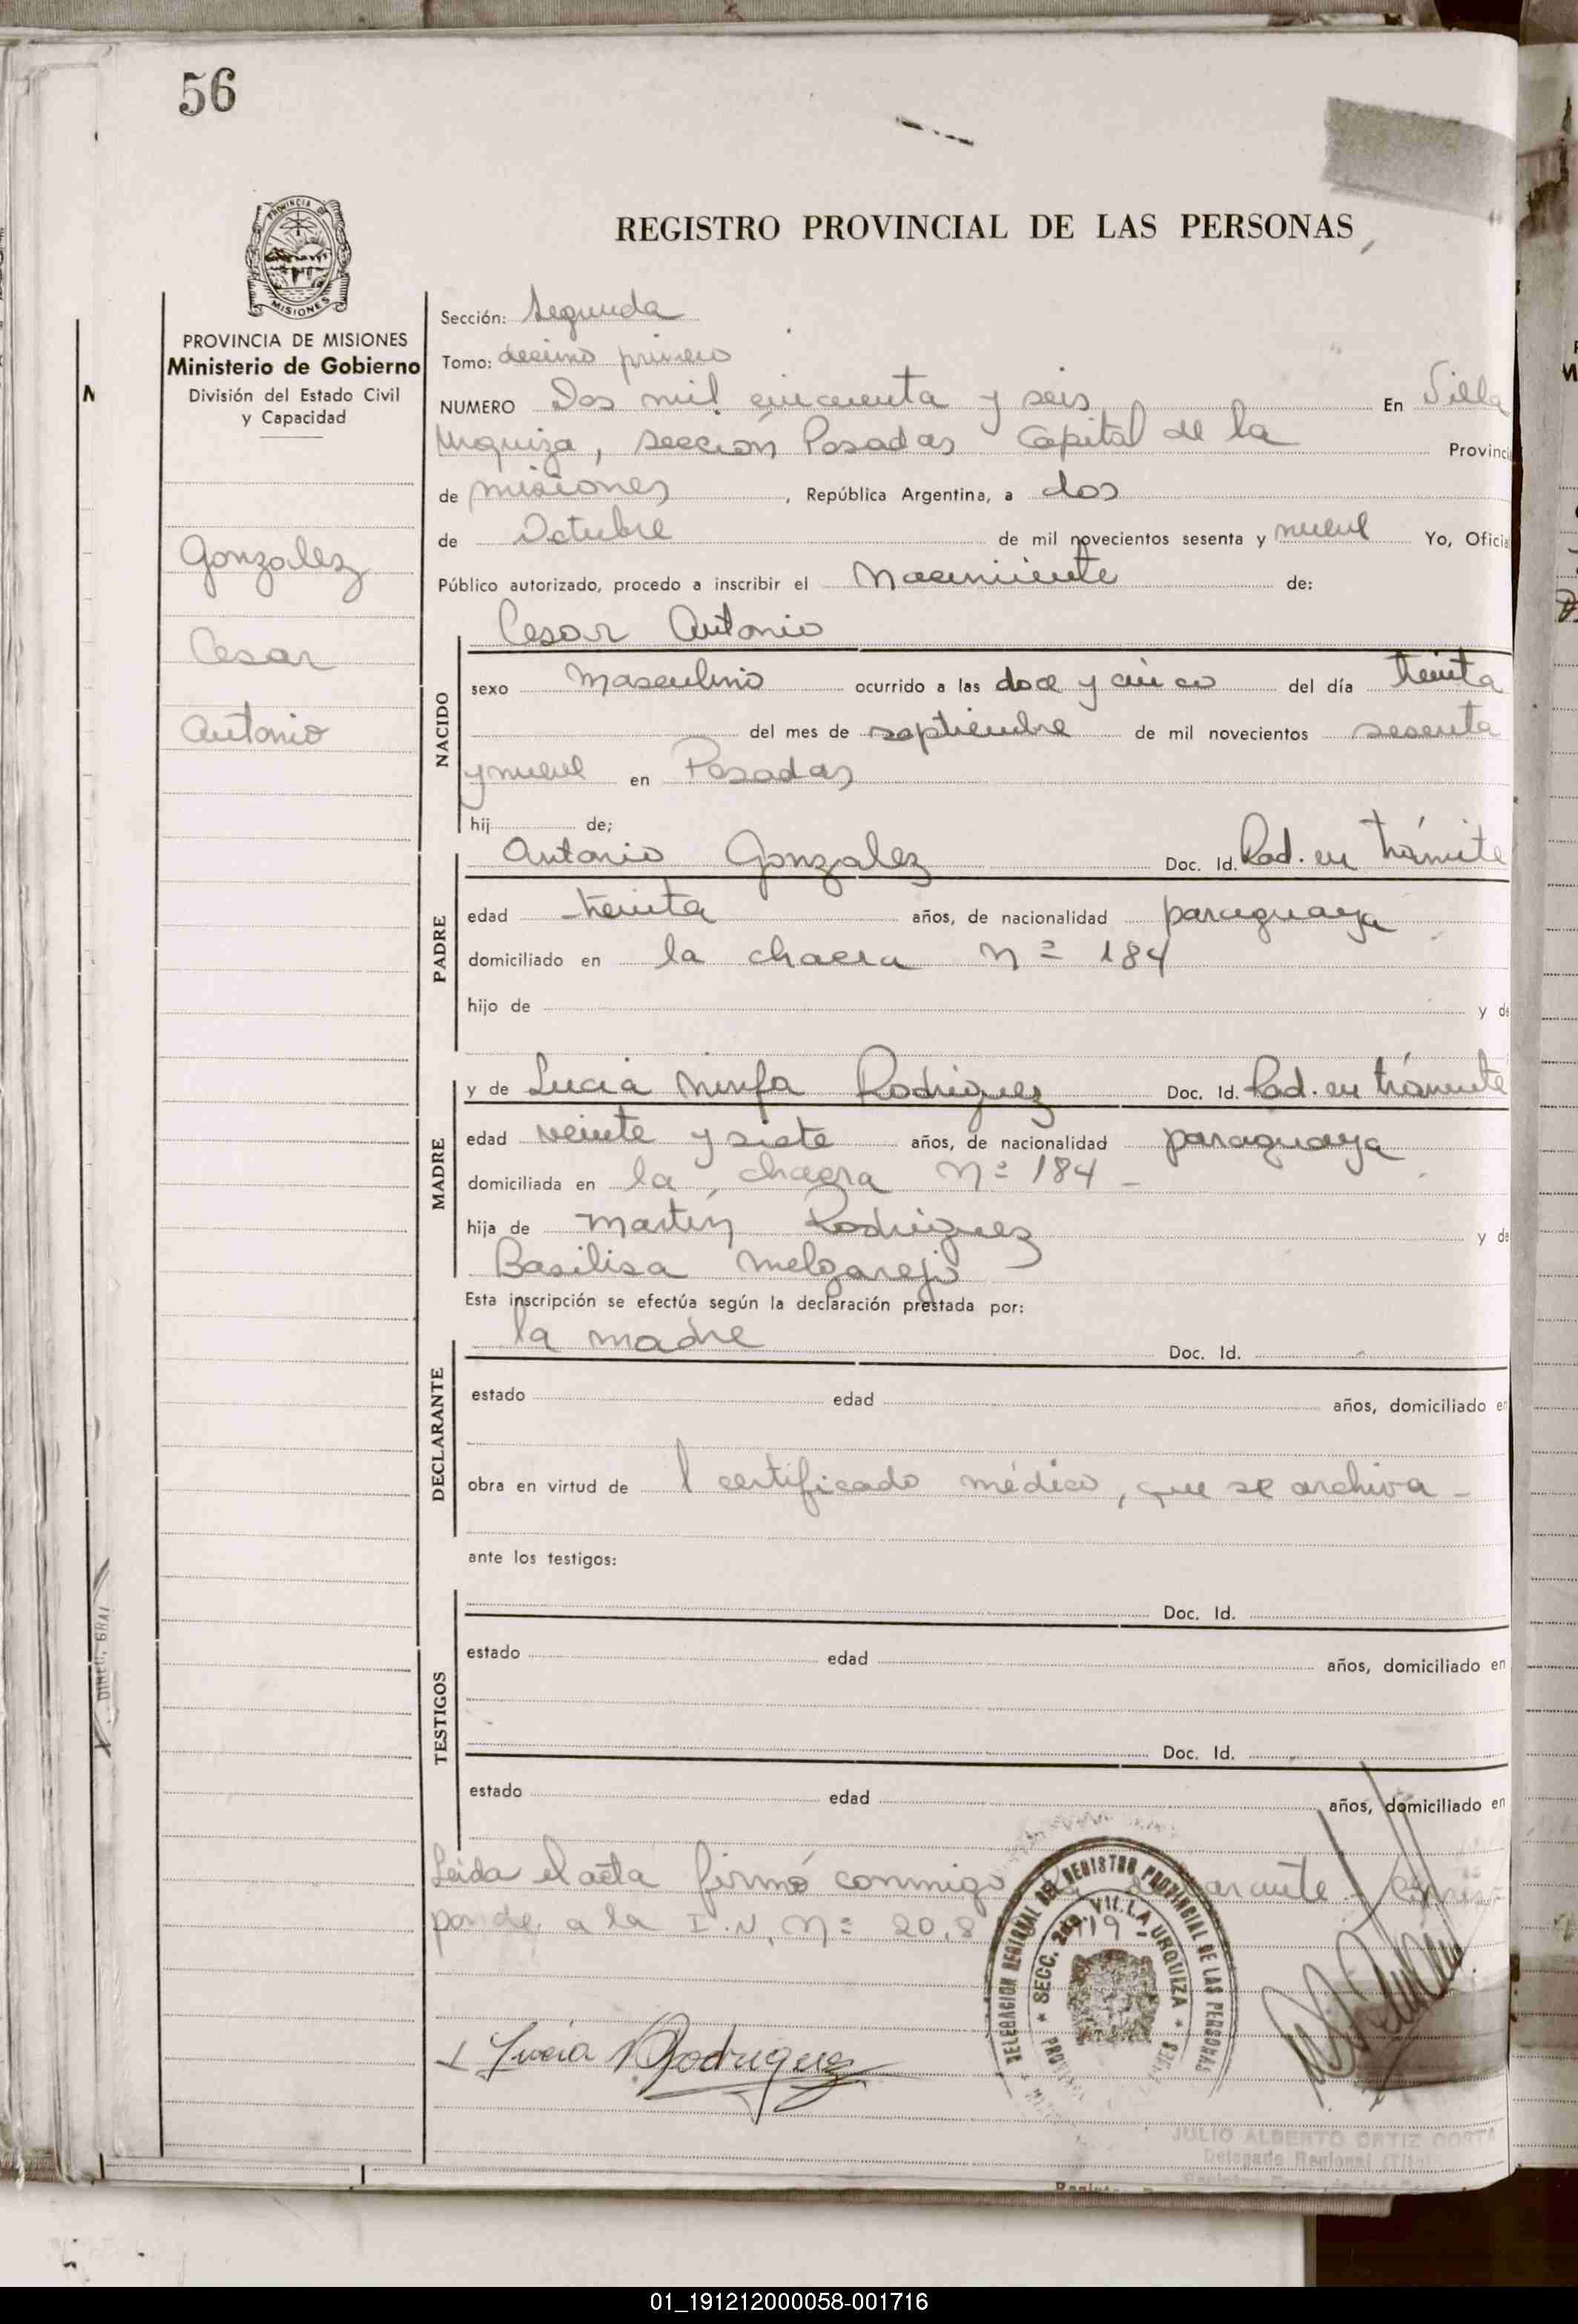 56
PROVINCIA
MISIONES
PROVINCIA DE MISIONES
Ministerio de Gobierno
División del Estado Civil
y Capacidad
Gonzalez
Cesar
Antonio
REGISTRO PROVINCIAL DE LAS PERSONAS
Sección: Segunda
Tomo: decimo primero
NUMERO Dos mil cincuenta y seis En Villa
Urquiza, sección Posadas Capital de la Provinci
de misiones, República Argentina, a dos
de Octubre de mil novecientos sesenta y nueve Yo, Oficia
Público autorizado, procedo a inscribir el Nacimiento de:
NACIDO
Cesar Antonio
sexo masculino ocurrido a las doce y cinco del día treinta
del mes de septiembre de mil novecientos sesenta
y nueve en Posadas
hij de;
PADRE
Antonio Gonzalez Doc. Id. Rad. en trámite
edad treinta años, de nacionalidad paraguaya
domiciliado en la chacra Nº 184
hijo de y de
MADRE
y de Lucia Ninfa Rodriguez Doc. Id. Rad. en trámite
edad veinte y siete años, de nacionalidad paraguaya
domiciliada en la chacra Nº 184 -
hija de Martin Rodriguez y de
Basilisa Melgarejo
Esta inscripción se efectúa según la declaración prestada por:
DECLARANTE
la madre Doc. Id.
estado edad años, domiciliado en
obra en virtud de l certificado médico, que se archiva -
ante los testigos:
TESTIGOS
Doc. Id.
estado edad años, domiciliado en
Doc. Id.
estado edad años, domiciliado en
Leida el acta firmó conmigo la declarante - Corres-
ponde a la I.N. Nº 20.8 719-
DELEGACION REGIONAL DEL REGISTRO PROVINCIAL DE LAS PERSONAS
SECC. 2da. VILLA URQUIZA
Lucia N Rodriguez
JULIO ALBERTO ORTIZ COSTA
Delegado Regional
01_191212000058-001716